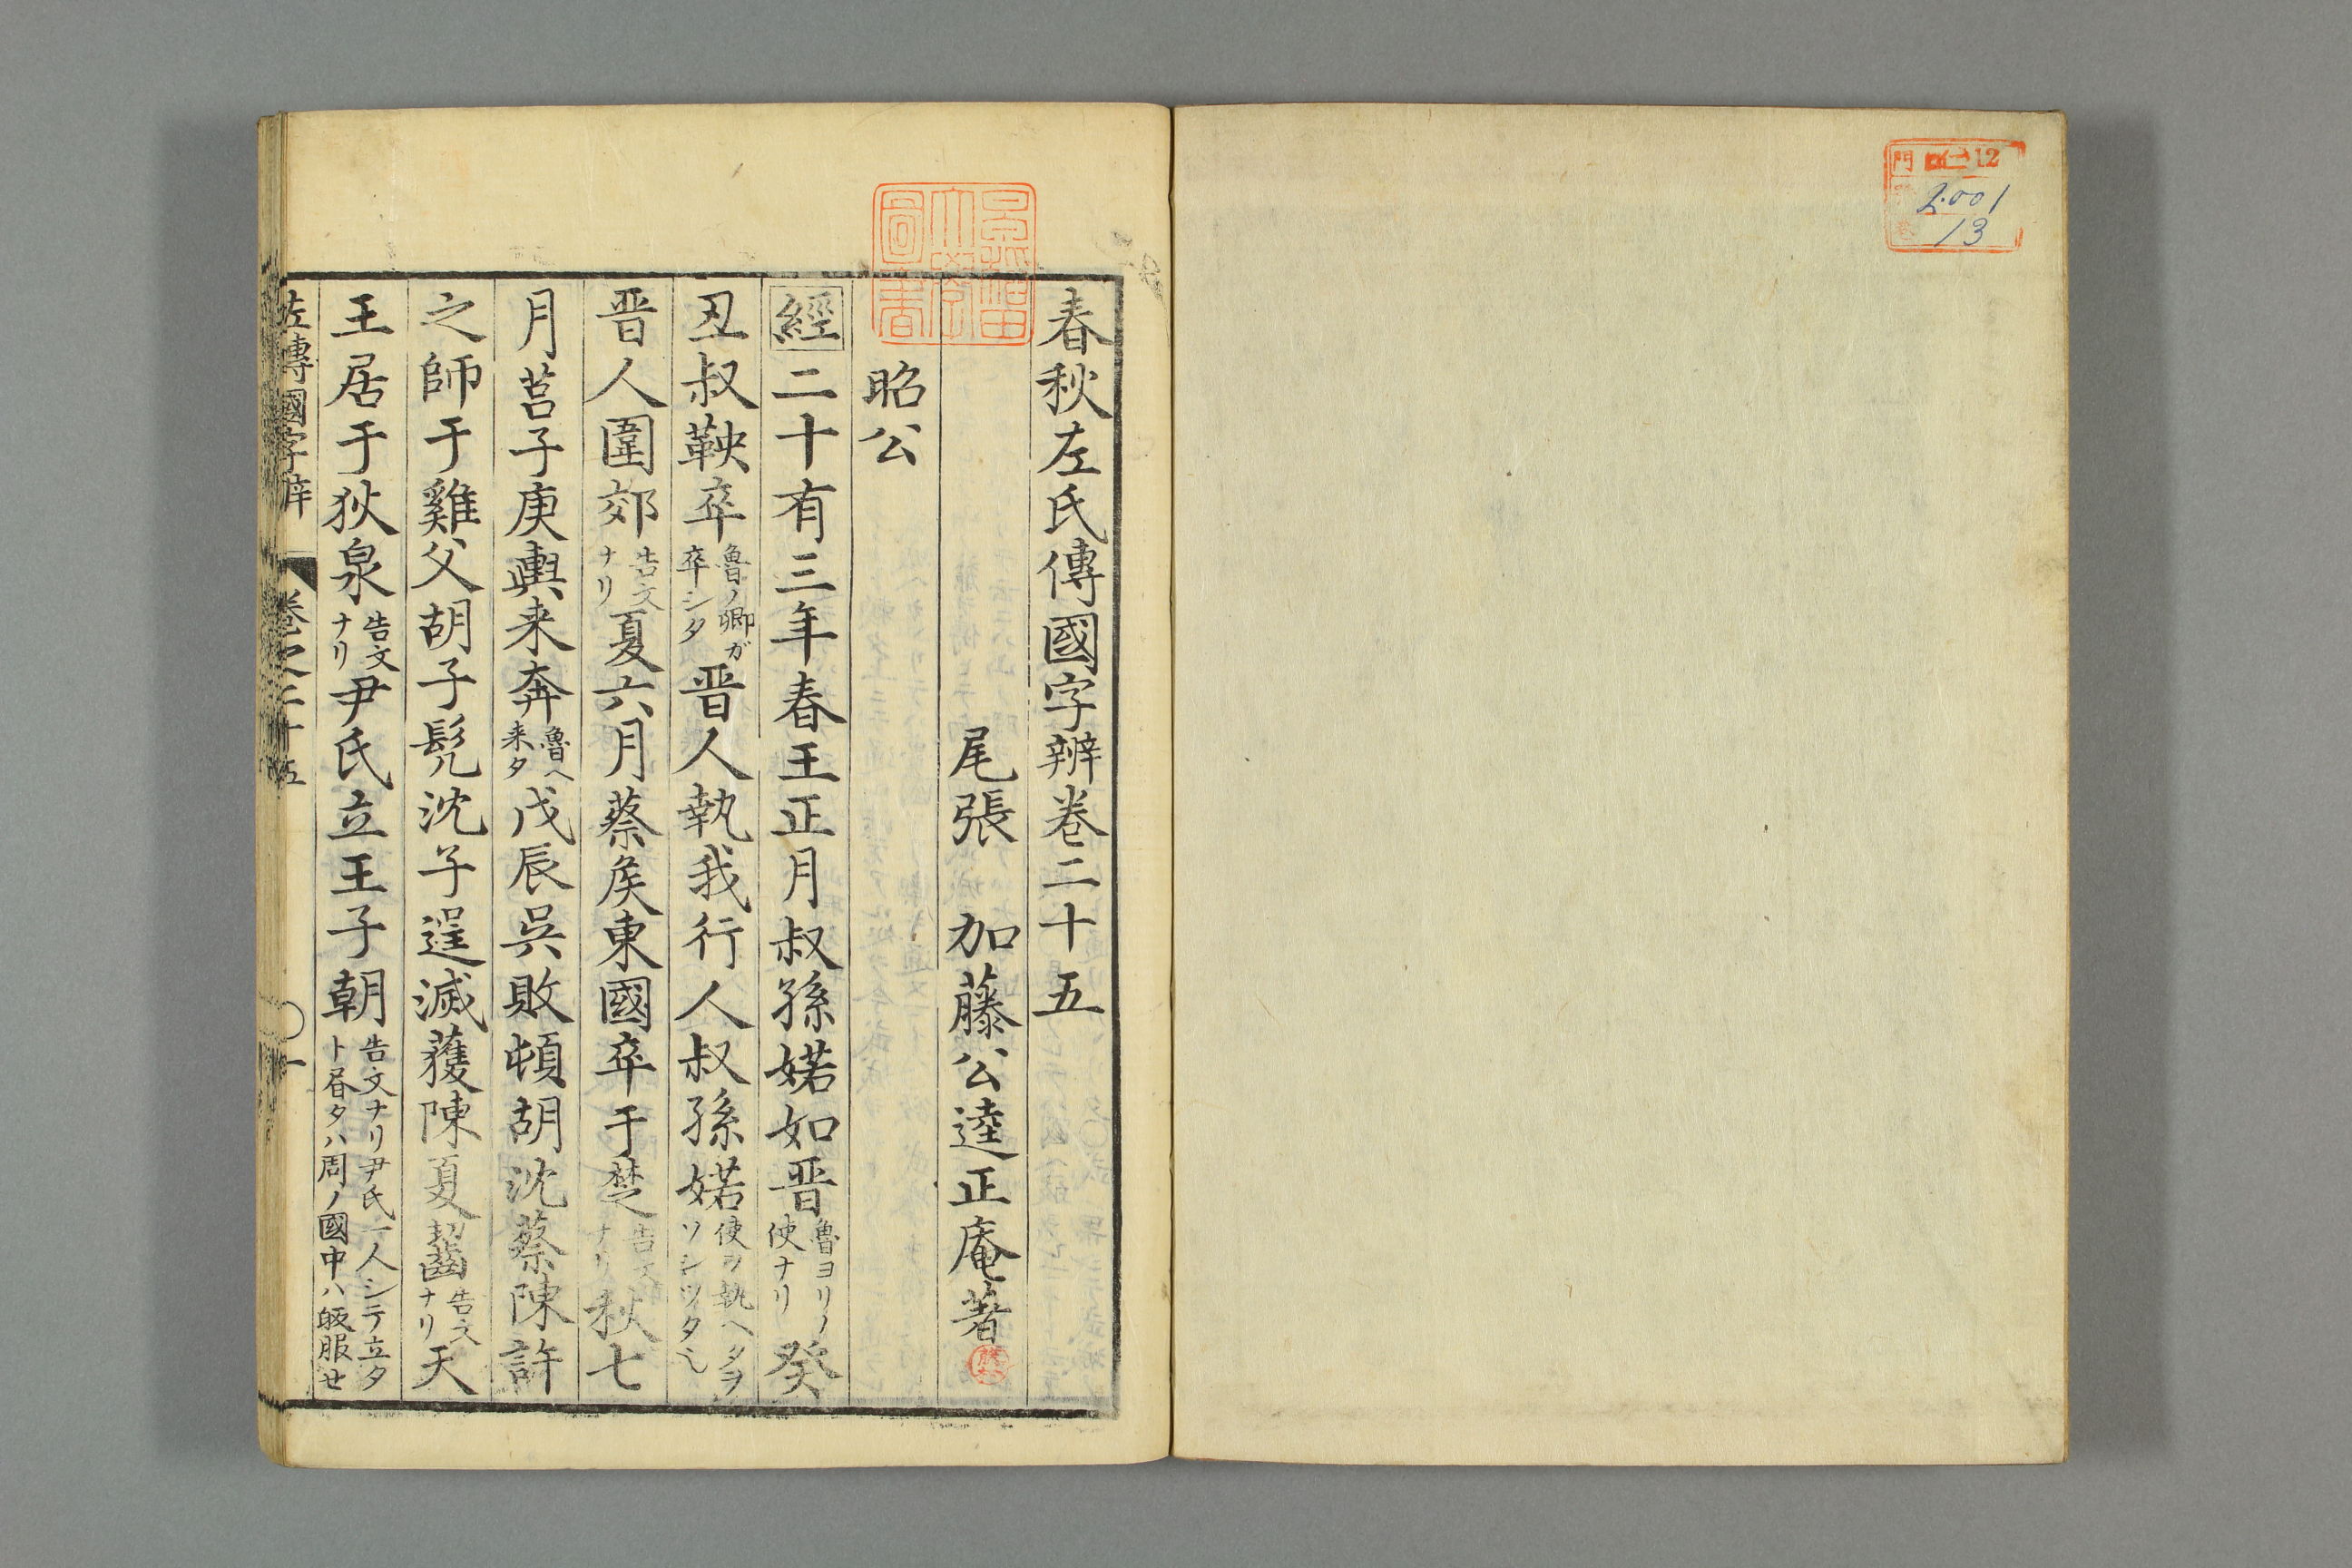 門 12
2.001
13
春秋左氏傳國字辨卷二十五
尾張 加藤公逵正庵著
昭公
經二十有三年春王正月叔孫婼如晋魯ヨリノ使ナリ癸
丑叔鞅卒魯ノ卿ガ卒シタ晋人執我行人叔孫婼使ヲ執ヘタヲソシツタ也
晋人圍郊告文ナリ夏六月蔡侯東國卒于楚告文ナリ秋七
月莒子庚輿来奔魯ヘ来タ戊辰吳敗頓胡沈蔡陳許
之師于雞父胡子髡沈子逞滅獲陳夏齧告文ナリ天
王居于狄泉告文ナリ尹氏立王子朝告文ナリ尹氏一人シテ立タト昏タハ周ノ國中ハ皈服セ
左傳國字辨 卷之二十五 一